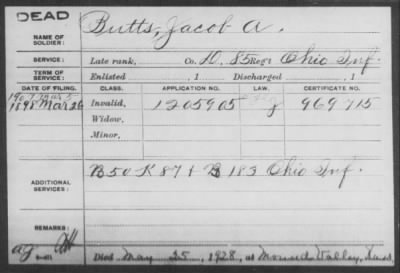 DEAD
NAME OF SOLDIER: Butts, Jacob A.
SERVICE: Late rank, Co. 10. 85 Reg't Ohio Inf.
TERM OF SERVICE: Enlisted , 1 Discharged , 1
DATE OF FILING. CLASS. APPLICATION NO. LAW. CERTIFICATE NO.
1907 Mar 5
1898 Mar 26 Invalid, 1205905 969715
Widow,
Minor,
ADDITIONAL SERVICES: B 50 K 87 & B 183 Ohio Inf.
REMARKS:
Died May 25, 1928, at Mound Valley, Kans.